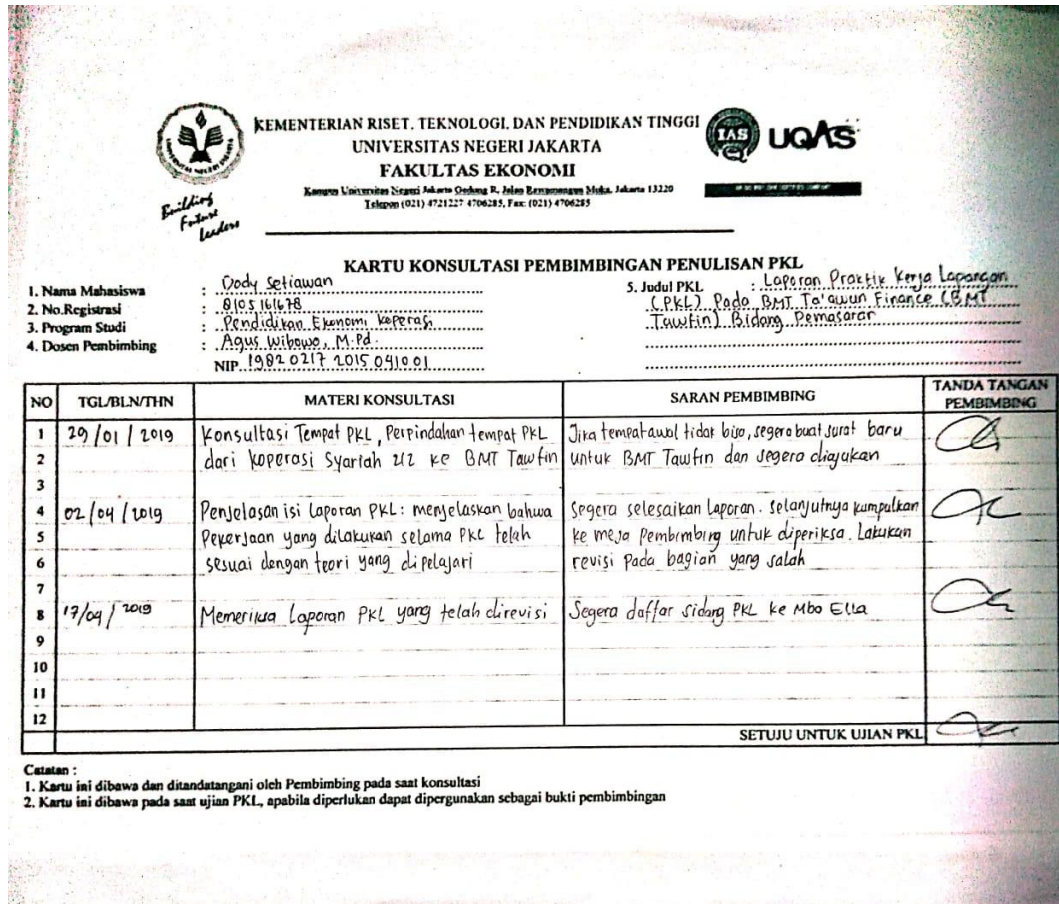 KEMENTERIAN RISET, TEKNOLOGI, DAN PENDIDIKAN TINGGI
UNIVERSITAS NEGERI JAKARTA
FAKULTAS EKONOMI
Kampus Universitas Negeri Jakarta Gedung R, Jalan Rawamangun Muka, Jakarta 13220
Telepon (021) 4721227 4706285, Fax: (021) 4706285
Building
Future
Leaders
IAS
UQAS
KARTU KONSULTASI PEMBIMBINGAN PENULISAN PKL
1. Nama Mahasiswa : Dody Setiawan
2. No.Registrasi : 8105161678
3. Program Studi : Pendidikan Ekonomi Koperasi
4. Dosen Pembimbing : Agus Wibowo, M.Pd.
NIP. 19820217 201504 1001
5. Judul PKL : Laporan Praktik Kerja Lapangan
(PKL) Pada BMT Ta'awun Finance (BMT
Tawfin) Bidang Pemasaran
NO TGL/BLN/THN MATERI KONSULTASI SARAN PEMBIMBING TANDA TANGAN PEMBIMBING
1 29/01/2019 Konsultasi Tempat PKL, Perpindahan tempat PKL Jika tempat awal tidak bisa, segera buat surat baru
2 dari Koperasi Syariah 212 ke BMT Tawfin untuk BMT Tawfin dan segera diajukan
3
4 02/04/2019 Penjelasan isi Laporan PKL: menjelaskan bahwa Segera selesaikan Laporan. Selanjutnya kumpulkan
5 Pekerjaan yang dilakukan selama PKL telah ke meja Pembimbing untuk diperiksa. Lakukan
6 sesuai dengan teori yang dipelajari revisi Pada bagian yang salah
7
8 17/04/2019 Memeriksa Laporan PKL yang telah direvisi Segera daftar sidang PKL ke Mba Ella
9
10
11
12
SETUJU UNTUK UJIAN PKL
Catatan :
1. Kartu ini dibawa dan ditandatangani oleh Pembimbing pada saat konsultasi
2. Kartu ini dibawa pada saat ujian PKL, apabila diperlukan dapat dipergunakan sebagai bukti pembimbingan